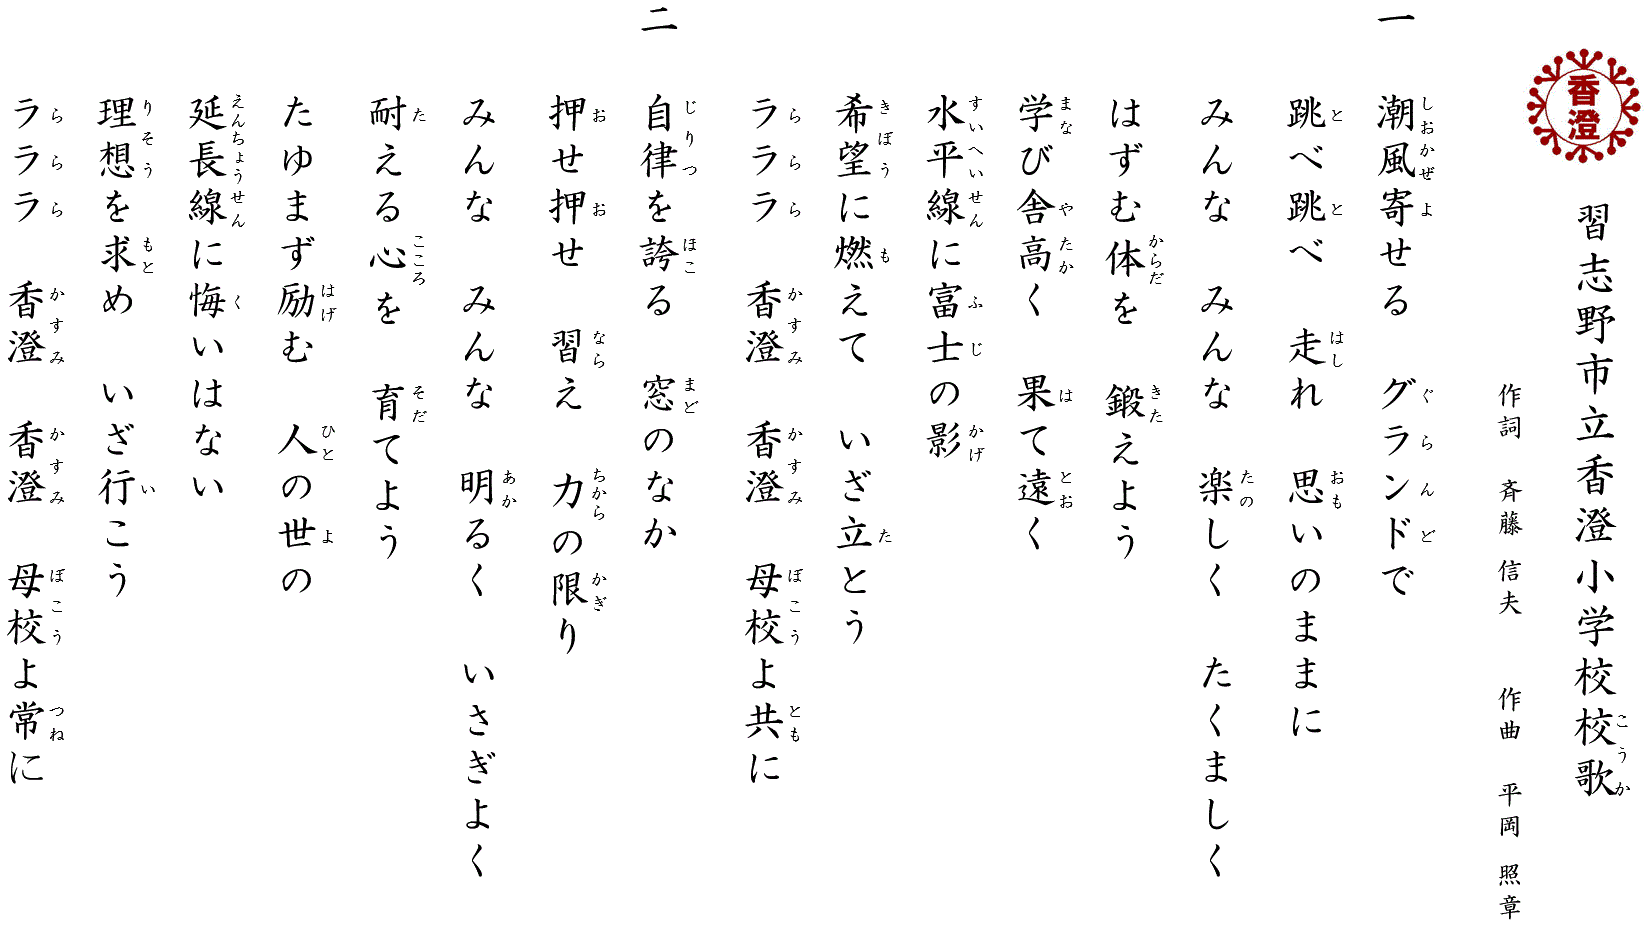 香澄
習志野市立香澄小学校校歌
作詞 斉藤 信夫 作曲 平岡 照章
一
潮風寄せる グランドで
跳べ跳べ 走れ 思いのままに
みんな みんな 楽しく たくましく
はずむ体を 鍛えよう
学び舎高く 果て遠く
水平線に富士の影
希望に燃えて いざ立とう
ラララ 香澄 香澄 母校よ共に
二
自律を誇る 窓のなか
押せ押せ 習え 力の限り
みんな みんな 明るく いさぎよく
耐える心を 育てよう
たゆまず励む 人の世の
延長線に悔いはない
理想を求め いざ行こう
ラララ 香澄 香澄 母校よ常に